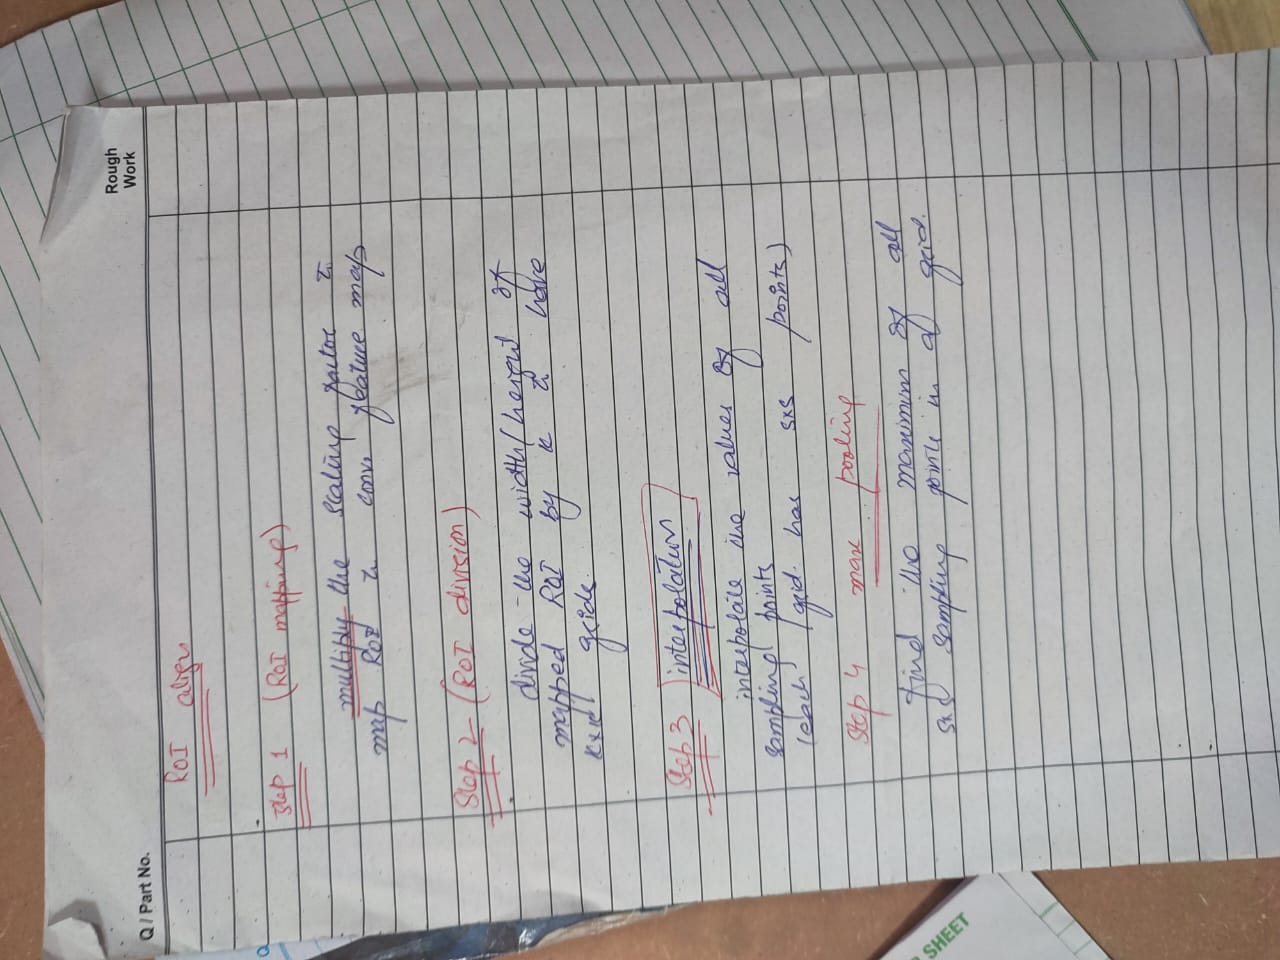 Q / Part No.
Rough
Work
ROI align
Step 1 (ROI mapping)
multiply the scaling factor to
map ROI to conv. feature map
Step 2 - (ROI division)
divide the width/height of
mapped ROI by k to have
kxk grids.
Step 3 interpolation
interpolate the values of all
sampling points
(each grid has sxs points)
Step 4 max pooling
find the maximum of all
sxs sampling points in a grid.
SHEET